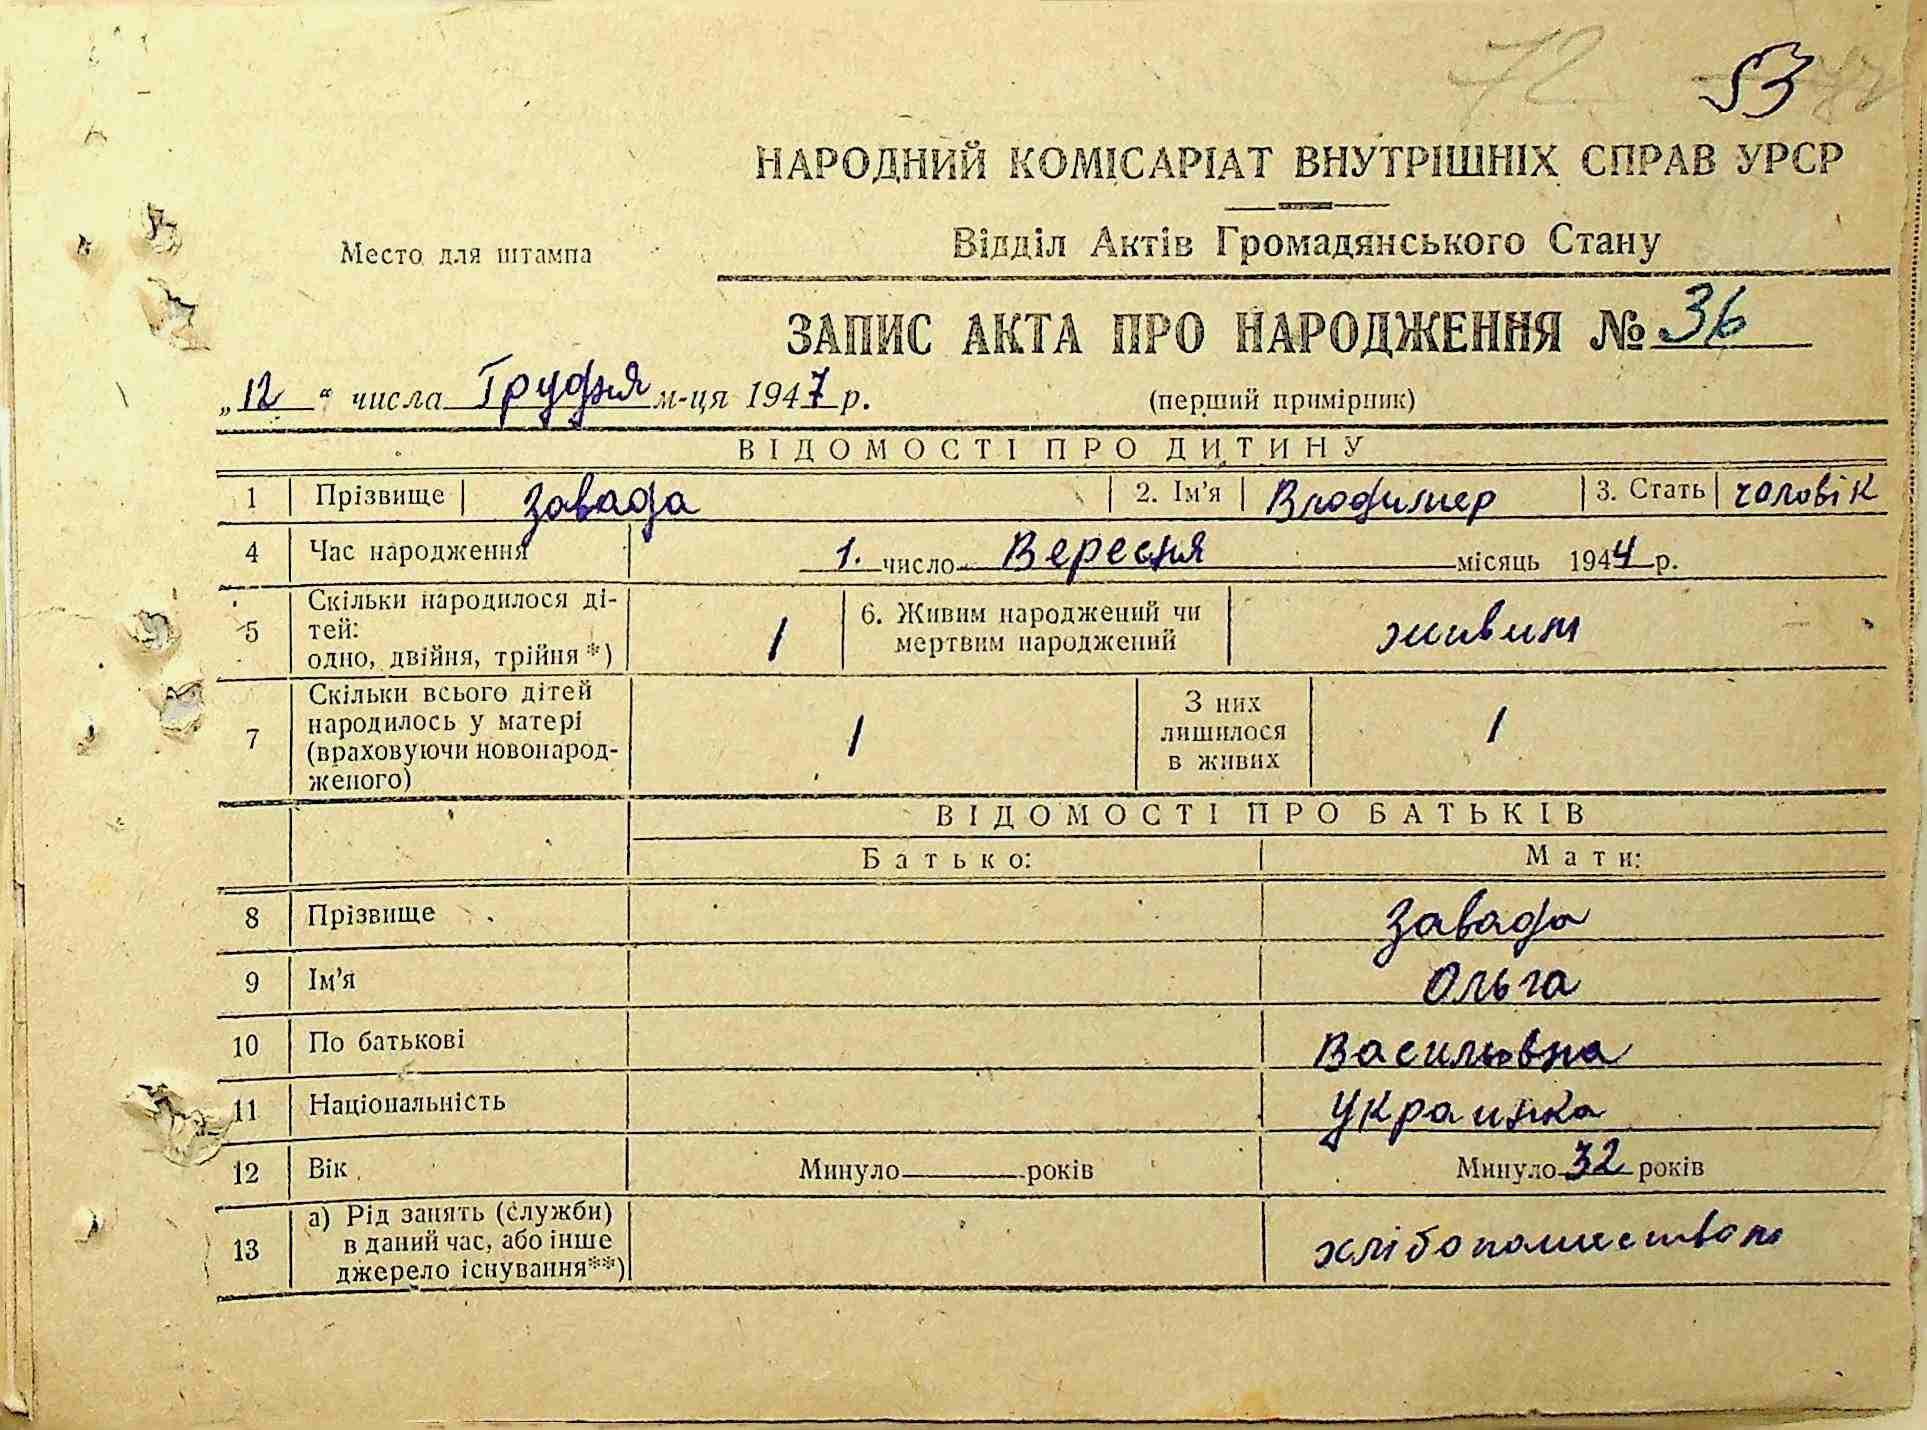 72 53
НАРОДНИЙ КОМІСАРІАТ ВНУТРІШНІХ СПРАВ УРСР
Место для штампа
Відділ Актів Громадянського Стану
ЗАПИС АКТА ПРО НАРОДЖЕННЯ № 36
„12“ числа Грудня м-ця 1947 р. (перший примірник)
ВІДОМОСТІ ПРО ДИТИНУ
1 Прізвище Завада 2. Ім'я Владимер 3. Стать чоловік
4 Час народження 1. число Вересня місяць 1944 р.
5 Скільки народилося ді-
тей:
одно, двійня, трійня *) 1 6. Живим народжений чи
мертвим народжений живим
7 Скільки всього дітей
народилось у матері
(враховуючи новонарод-
женого) 1 З них
лишилося
в живих 1
ВІДОМОСТІ ПРО БАТЬКІВ
Батько: Мати:
8 Прізвище Завада
9 Ім'я Ольга
10 По батькові Васильовна
11 Національність Украинка
12 Вік Минуло років Минуло 32 років
13 а) Рід занять (служби)
в даний час, або інше
джерело існування**)